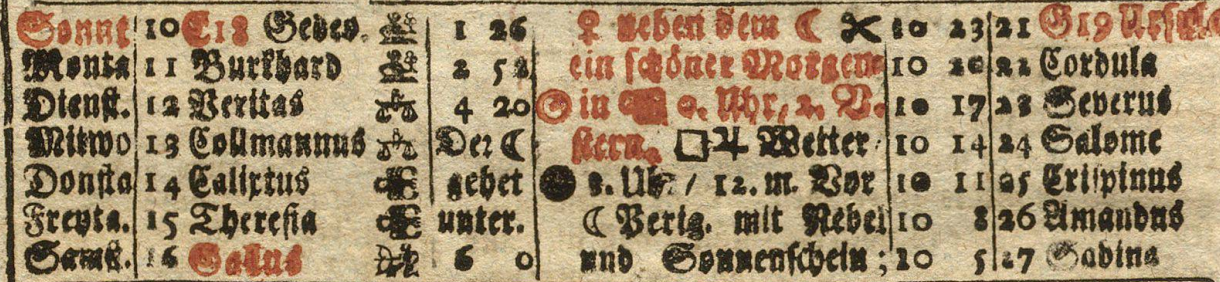 Sonnt 10 E18 Gedeo. 1 26 ♀ neben dem ☾ 10 23 21 G19 Ursula
Monta 11 Burkhard 2 52 ein schöner Morgen 10 20 22 Cordula
Dienst. 12 Veritas ♎ 4 20 ☉ in 0. Uhr, 2. V. 10 17 23 Severus
Mitwo 13 Collmannus ♎ Der ☾ stern. □ ♃ Wetter 10 14 24 Salome
Donsta 14 Calixtus gehet ● 8. Uhr / 12. m. Vor 10 11 25 Crispinus
Freyta. 15 Theresia unter. ☾ Perig. mit Nebel 10 8 26 Amandus
Samst. 16 Gallus 6 0 und Sonnenschein ; 10 5 27 Sabina